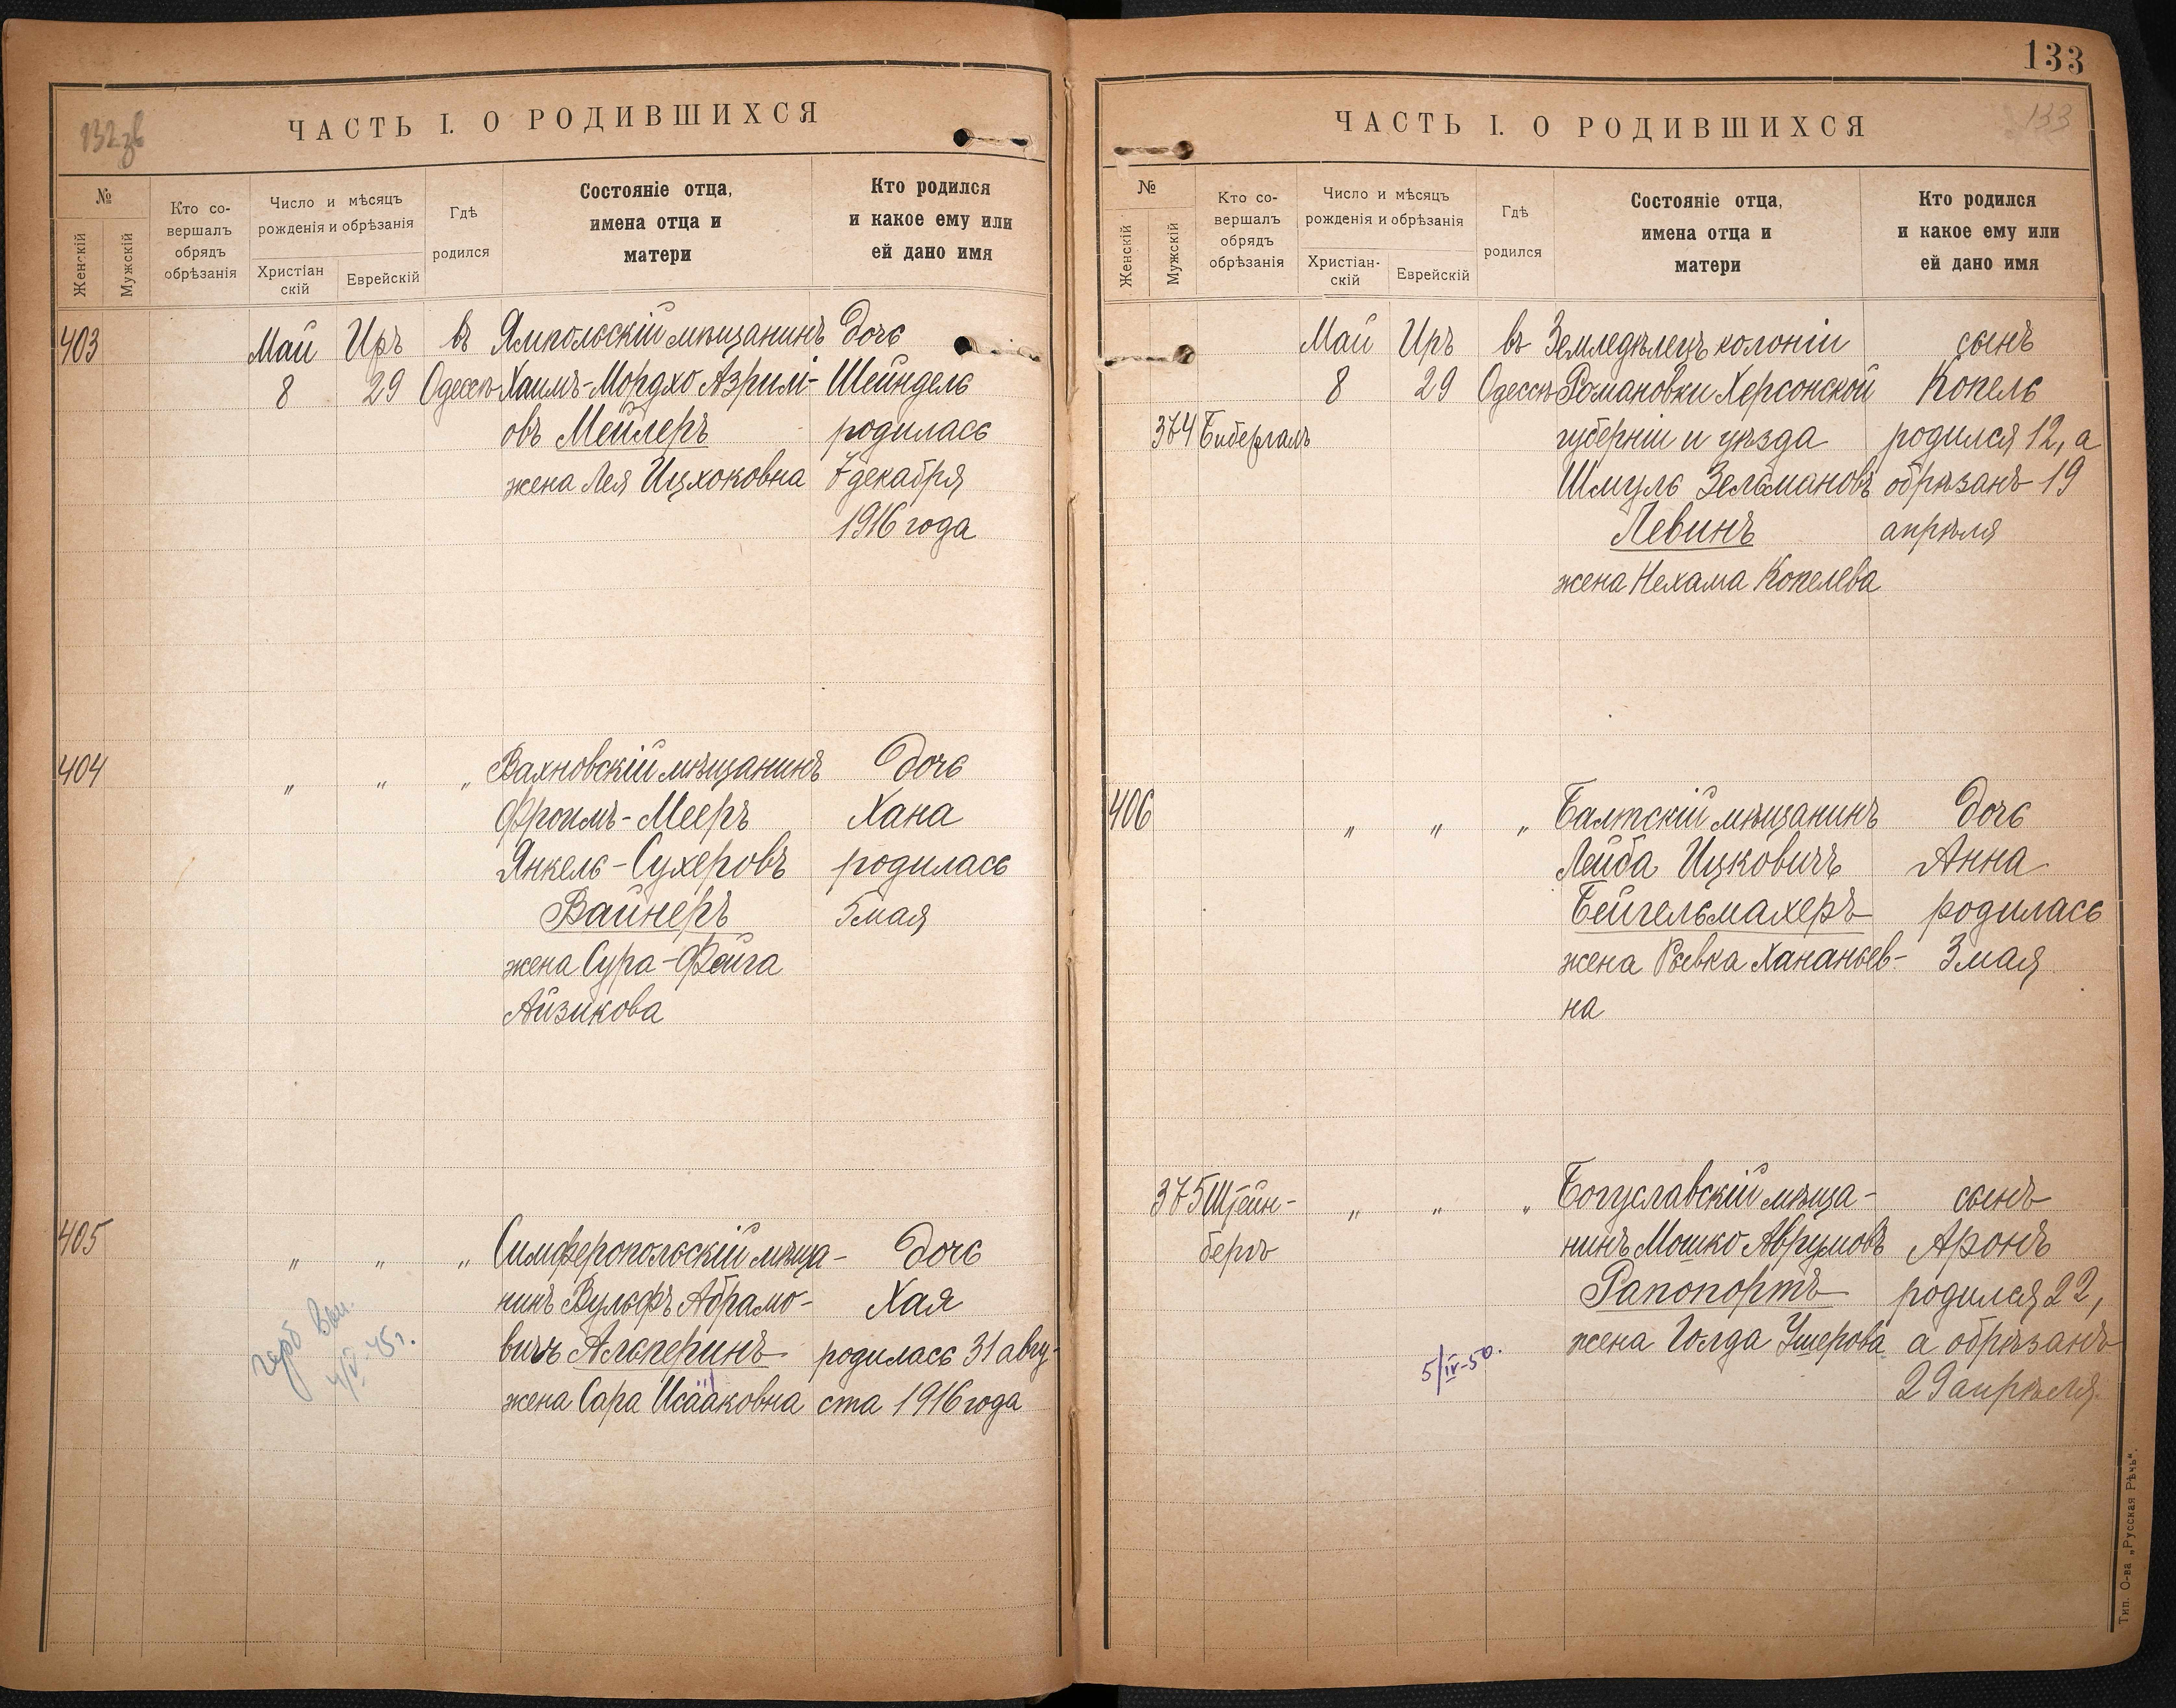 132 зв
ЧАСТЬ I. О РОДИВШИХСЯ
№
Женскій
Мужскій
Кто со-
вершалъ
обрядъ
обрѣзанія
Число и мѣсяцъ
рожденія и обрѣзанія
Христіан
скій
Еврейскій
Гдѣ
родился
Состояніе отца,
имена отца и
матери
Кто родился
и какое ему или
ей дано имя
403 Май Иръ въ Ямпольскій мѣщанинъ дочь
8 29 Одессѣ Хаимъ-Мордхо Азрилі- Шейндель
овъ Мейлеръ родилась
жена Лея Ицхоковна 7 декабря
1916 года
404 „ „ „ Вахновскій мѣщанинъ дочь
Фроимъ-Мееръ Хана
Янкель-Сухеровъ родилась
Вайнеръ 5 мая
жена Сура-Фейга
Айзикова
405 „ „ „ Симферопольскій мѣща- дочь
нинъ Вульфъ Абрамо- Хая
вичъ Альперинъ родилась 31 авгу-
жена Сара Исааковна ста 1916 года
герб
4/V-45г.
133
133
ЧАСТЬ I. О РОДИВШИХСЯ
№
Женскій
Мужскій
Кто со-
вершалъ
обрядъ
обрѣзанія
Число и мѣсяцъ
рожденія и обрѣзанія
Христіан-
скій
Еврейскій
Гдѣ
родился
Состояніе отца,
имена отца и
матери
Кто родился
и какое ему или
ей дано имя
Май Иръ въ Земледѣлецъ колоніи сынъ
8 29 Одессѣ Романовки Херсонской Копель
374 Бибергалъ губерніи и уѣзда родился 12, а
Шмуль Зельмановъ обрѣзанъ 19
Левинъ апрѣля
жена Нехама Копелева
406 „ „ „ Балтскій мѣщанинъ дочь
Лейба Ицковичъ Анна
Бейгельмахеръ родилась
жена Ривка Хананьев- 3 мая
на
375 Штейн- „ „ „ Богуславскій мѣща- сынъ
бергъ нинъ Мошко Аврумовъ Аронъ
Рапопортъ родился 22,
жена Голда Ушерова а обрѣзанъ
5/IV-50. 29 апрѣля.
Тип. О-ва „Русская Рѣчь".